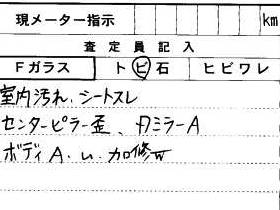 現メーター指示 km
査定員記入
Fガラス ト(ビ)石 ヒビワレ
室内汚れ、シートスレ
センターピラー歪、Rミラー A
ボディ A. U. 加修W